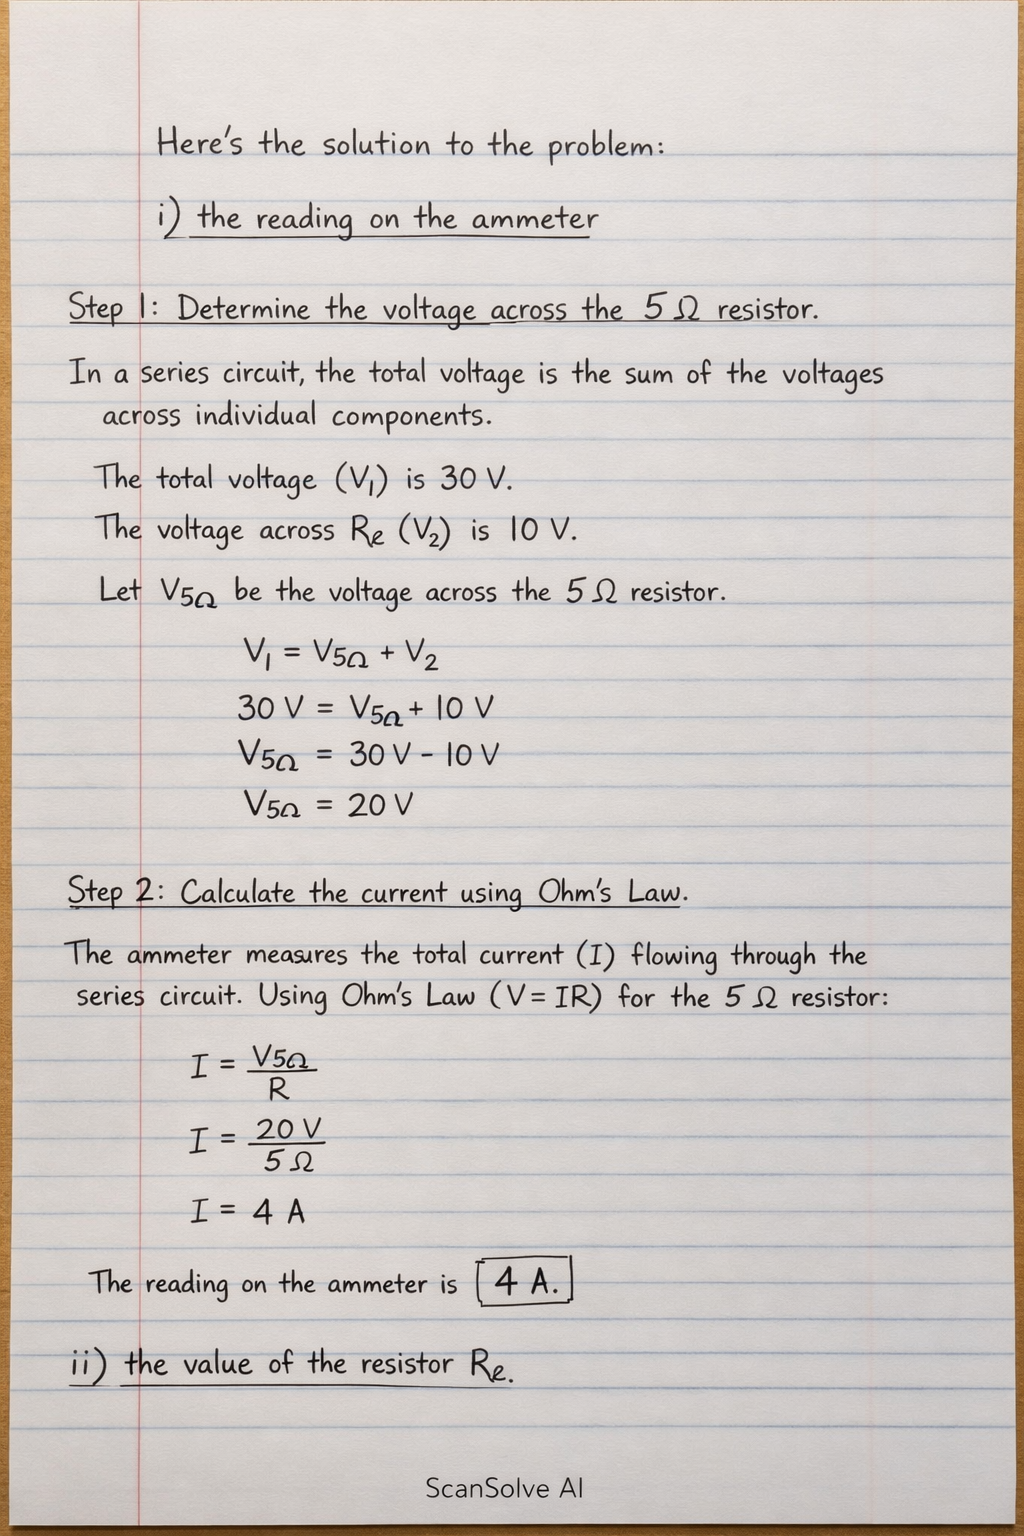 Here's the solution to the problem:
i) the reading on the ammeter
Step 1: Determine the voltage across the 5 Ω resistor.
In a series circuit, the total voltage is the sum of the voltages
across individual components.
The total voltage (V₁) is 30 V.
The voltage across Re (V₂) is 10 V.
Let V5Ω be the voltage across the 5 Ω resistor.
V₁ = V5Ω + V₂
30 V = V5Ω + 10 V
V5Ω = 30 V - 10 V
V5Ω = 20 V
Step 2: Calculate the current using Ohm's Law.
The ammeter measures the total current (I) flowing through the
series circuit. Using Ohm's Law (V = IR) for the 5 Ω resistor:
I = V5Ω / R
I = 20 V / 5 Ω
I = 4 A
The reading on the ammeter is 4 A.
ii) the value of the resistor Re.
ScanSolve AI